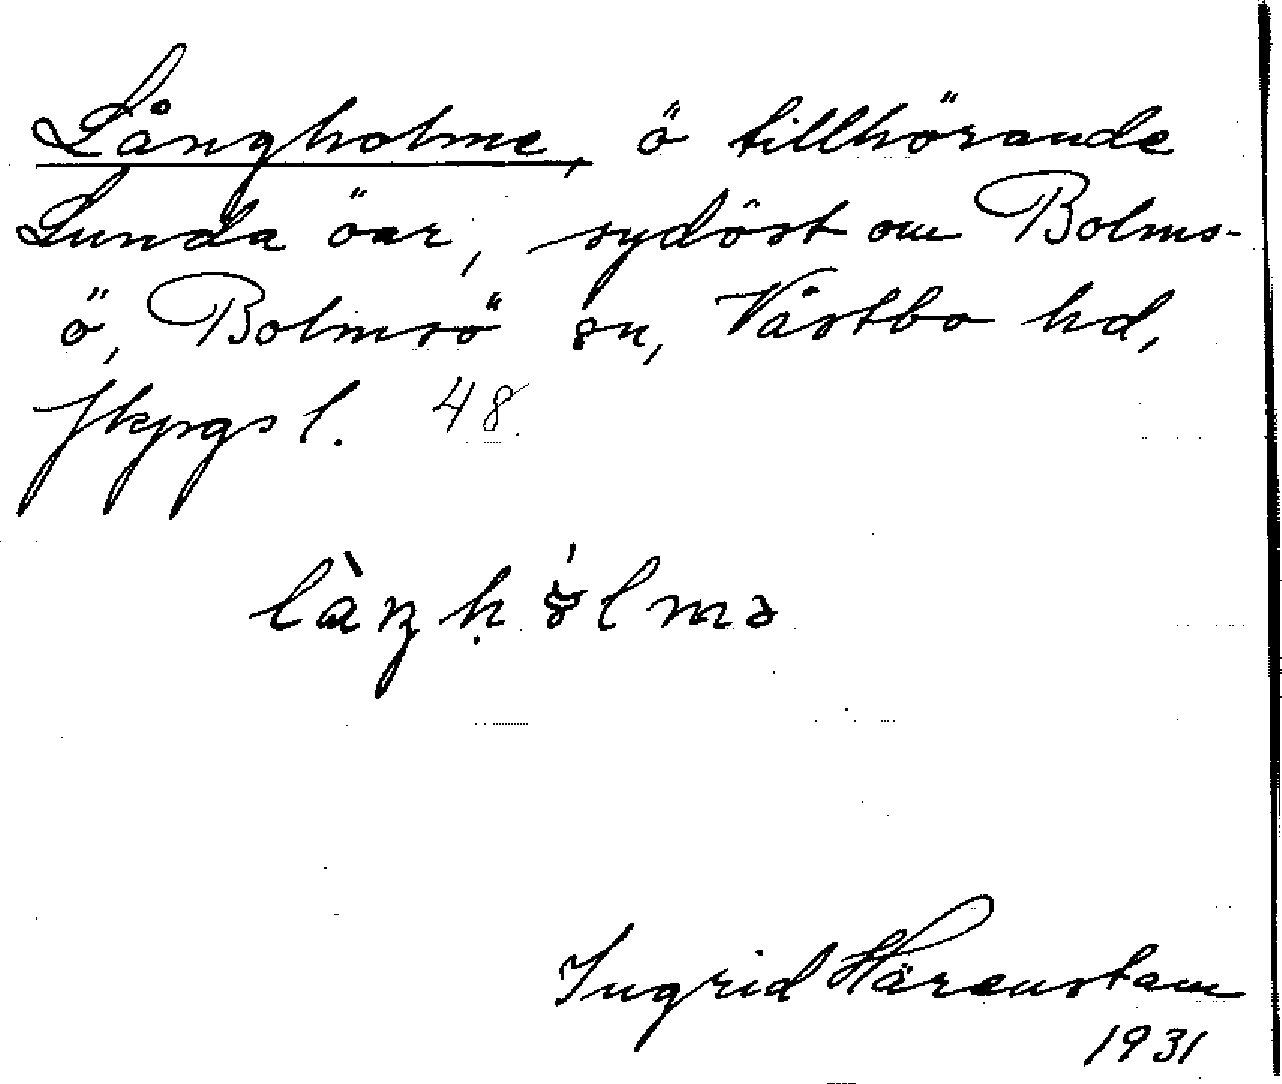 Långholme, ö tillhörande
Lunda öar, sydöst om Bolms-
ö, Bolmsö sn, Västbo hd,
Jkpgs l. 48.
Ingrid Härenstam
1931